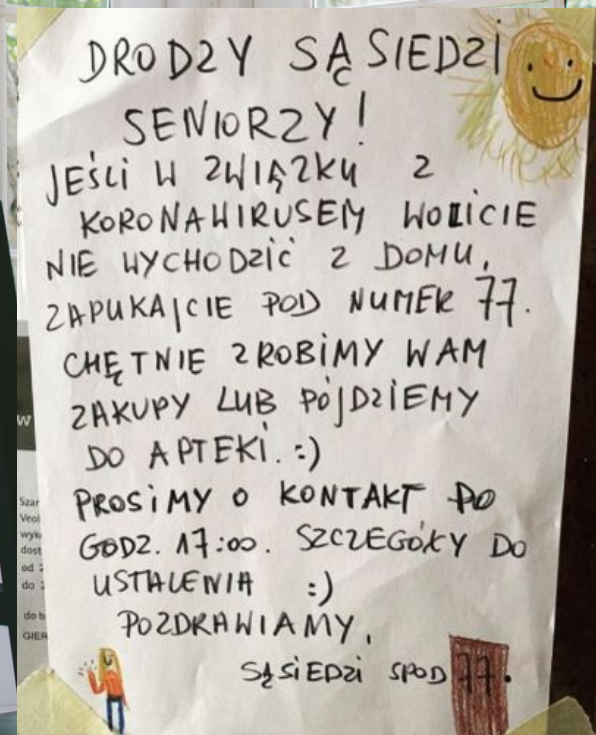 DRODZY SĄSIEDZI
SENIORZY!
JEŚLI W ZWIĄZKU Z
KORONAWIRUSEM WOLICIE
NIE WYCHODZIĆ Z DOMU,
ZAPUKAJCIE POD NUMER 77.
CHĘTNIE ZROBIMY WAM
ZAKUPY LUB PÓJDZIEMY
DO APTEKI. :)
PROSIMY O KONTAKT PO
GODZ. 17:00. SZCZEGÓŁY DO
USTALENIA :)
POZDRAWIAMY,
SĄSIEDZI SPOD 77.
W
Szan
Veol
wyk
dost
od
do
do b
GIER